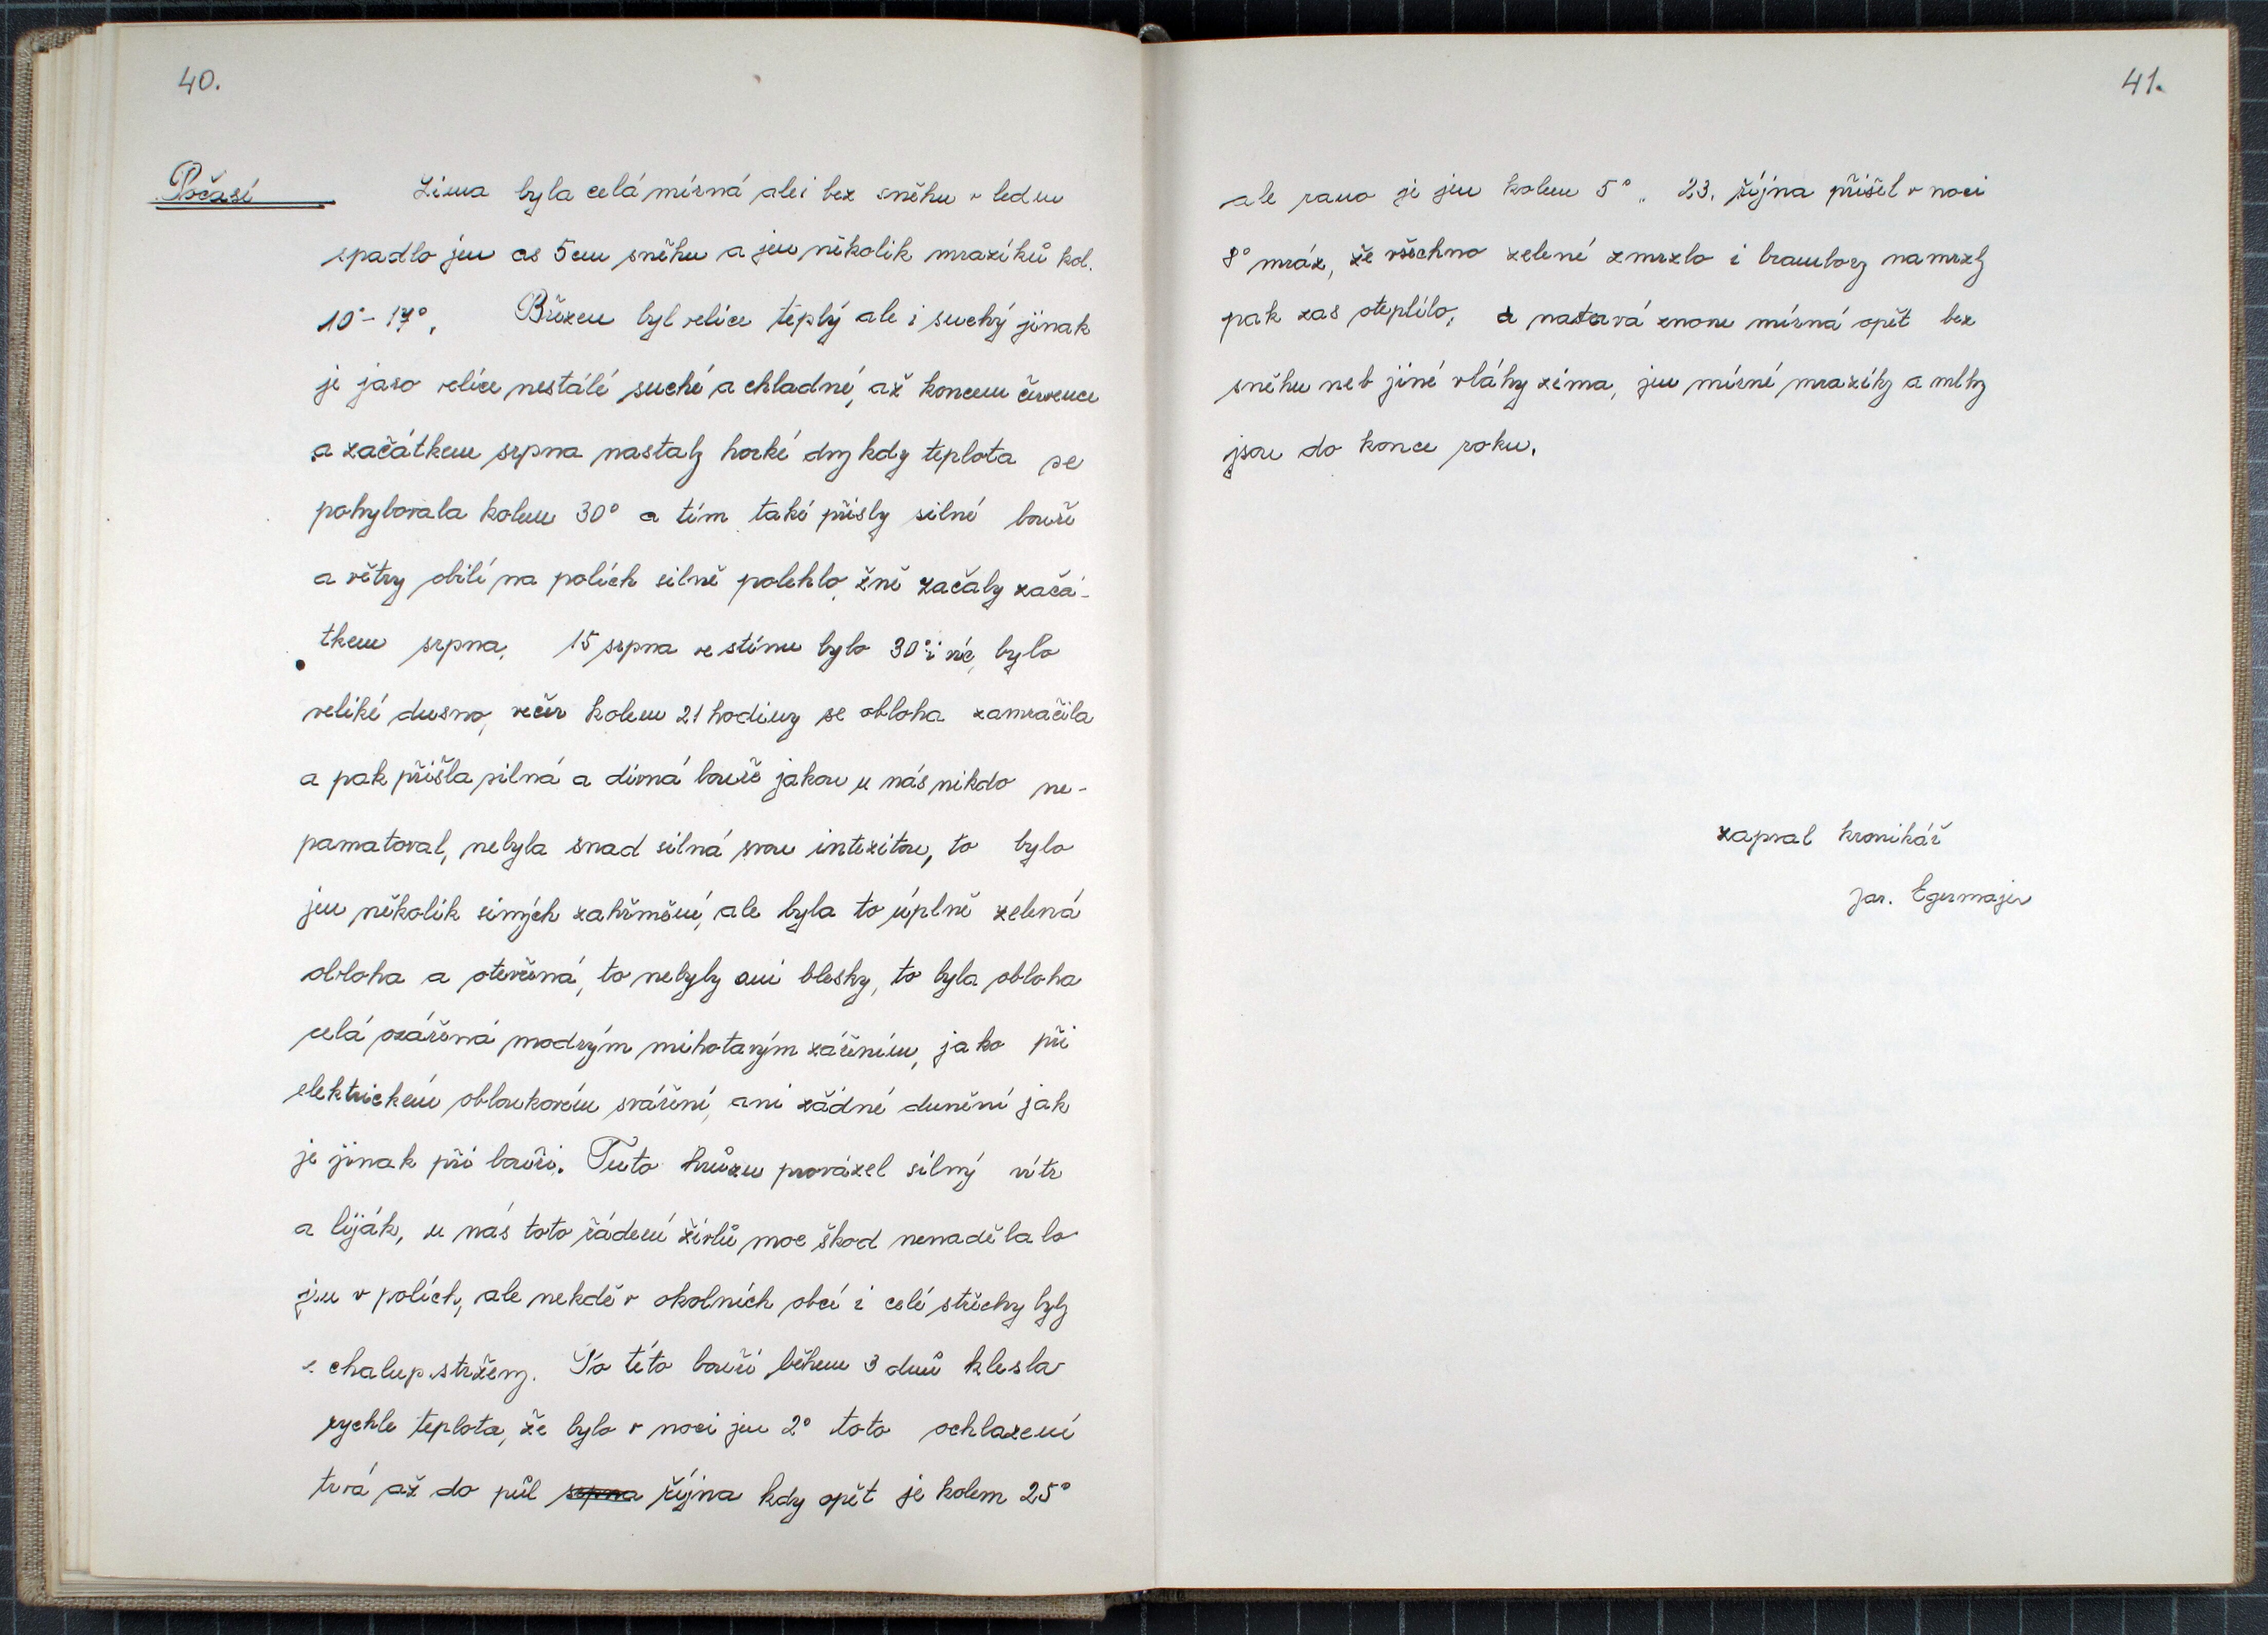 40.
Počasí
Zima byla celá mírná ale i bez sněhu v lednu
spadlo jen as 5cm sněhu a jen několik mrazíků kol.
10°-17°. Březen byl velice teplý ale i suchý jinak
je jaro velice nestálé suché a chladné, až koncem července
a začátkem srpna nastaly horké dny kdy teplota se
pohybovala kolem 30° a tím také přišly silné bouře
a větry obilí na polích silně polehlo, žně začaly začá-
tkem srpna. 15 srpna ve stínu bylo 30° i víc, bylo
veliké dusno, večer kolem 21 hodiny se obloha zamračila
a pak přišla silná a divná bouře jakou u nás nikdo ne-
pamatoval, nebyla snad silná svou intezitou, to bylo
jen několik siných zahřmění, ale byla to úplně zelená
obloha a otevřená, to nebyly ani blesky, to byla obloha
celá ozářená modrým mihotavým zářením, jako při
elektrickém obloukovém sváření, ani žádné dunění jak
je jinak při bouři. Tuto hrůzu provázel silný vítr
a liják, u nás toto řádění živlů moc škod nenadělalo
jen v polích, ale nekdě v okolních obcí i celé střechy byly
s chalup strženy. Po této bouři během 3 dnů klesla
rychle teplota, že bylo v noci jen 2° toto ochlazení
trvá až do půl srpna října kdy opět je kolem 25°
41.
ale rano je jen kolem 5°. 23. října přišel v noci
8° mráz, že všechno zelené zmrzlo i brambory namrzly
pak zas oteplilo, a nastává znovu mírná opět bez
sněhu neb jiné vláhy zima, jen mírné mrazíky a mlhy
jsou do konce roku.
zapsal kronikář
Jar. Egermajer